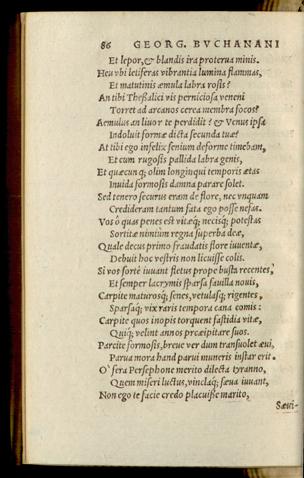 86 GEORG. BVCHANANI
Et lepor, & blandis ira proterua minis.
Heu vbi letiferas vibrantia lumina flammas,
Et matutinis æmula labra rosis?
An tibi Thessalici vis perniciosa veneni
Torret ad arcanos cerea membra focos?
Aemulus an liuor te perdidit? & Venus ipsa
Indoluit formæ dicta secunda tuæ?
At tibi ego infelix senium deforme timebam,
Et cum rugosis pallida labra genis,
Et quæcunq; olim longinqui temporis ætas
Inuida formosis damna parare solet.
Sed tenero securus eram de flore, nec vnquam
Credideram tantum fata ego posse nefas.
Vos ô quas penes est vitæq; necisq; potestas
Sortitæ nimium regna superba deæ,
Quale decus primo fraudatis flore iuuentæ,
Debuit hoc vestris non licuisse colis.
Si vos fortè iuuant fletus prope busta recentes,
Et semper lacrymis sparsa fauilla nouis,
Carpite maturosq; senes, vetulasq; rigentes,
Sparsaq; vix raris tempora cana comis:
Carpite quos inopis torquent fastidia vitæ,
Quiq; velint annos præcipitare suos.
Parcite formosis, breue ver dum transuolet æui,
Parua mora haud parui muneris instar erit.
O' fera Persephone merito dilecta tyranno,
Quem miseri luctus, vinclaq; sæua iuuant,
Non ego te facie credo placuisse marito,
Sæui-